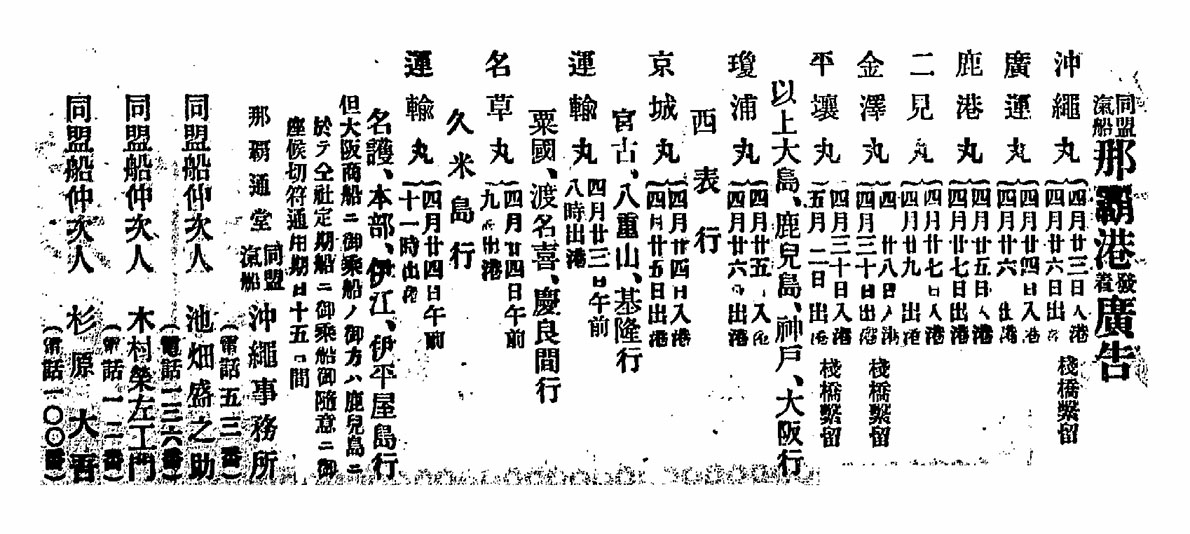 同盟汽船那覇港發着廣告
沖繩丸 四月廿三日入港 四月廿六日出港 棧橋繫留
廣運丸 四月廿四日入港 四月廿六日出港
鹿港丸 四月廿五日入港 四月廿七日出港
二見丸 四月廿七日入港 四月廿九日出港
金澤丸 四月廿八日入港 四月三十日出港 棧橋繫留
平壤丸 四月三十日入港 五月二日出港 棧橋繫留
以上大島、鹿兒島、神戶、大阪行
瓊浦丸 四月廿五日入港 四月廿六日出港
西表行
京城丸 四月廿四日入港 四月廿五日出港
宮古、八重山、基隆行
運輸丸 四月廿三日午前八時出港
粟國、渡名喜、慶良間行
名草丸 四月廿四日午前九時出港
久米島行
運輸丸 四月廿四日午前十一時出港
名護、本部、伊江、伊平屋島行
但大阪商船ニ御乘船ノ御方ハ鹿兒島ニ
於テ仝社定期船ニ御乘船御隨意ニ御
座候切符通用期日十五日間
那覇通堂 同盟汽船 沖繩事務所
(電話五三番)
同盟船仲次人 池畑盛之助
(電話一三六番)
同盟船仲次人 木村榮左工門
(電話一一二番)
同盟船仲次人 杉原大吾
(電話一〇〇番)